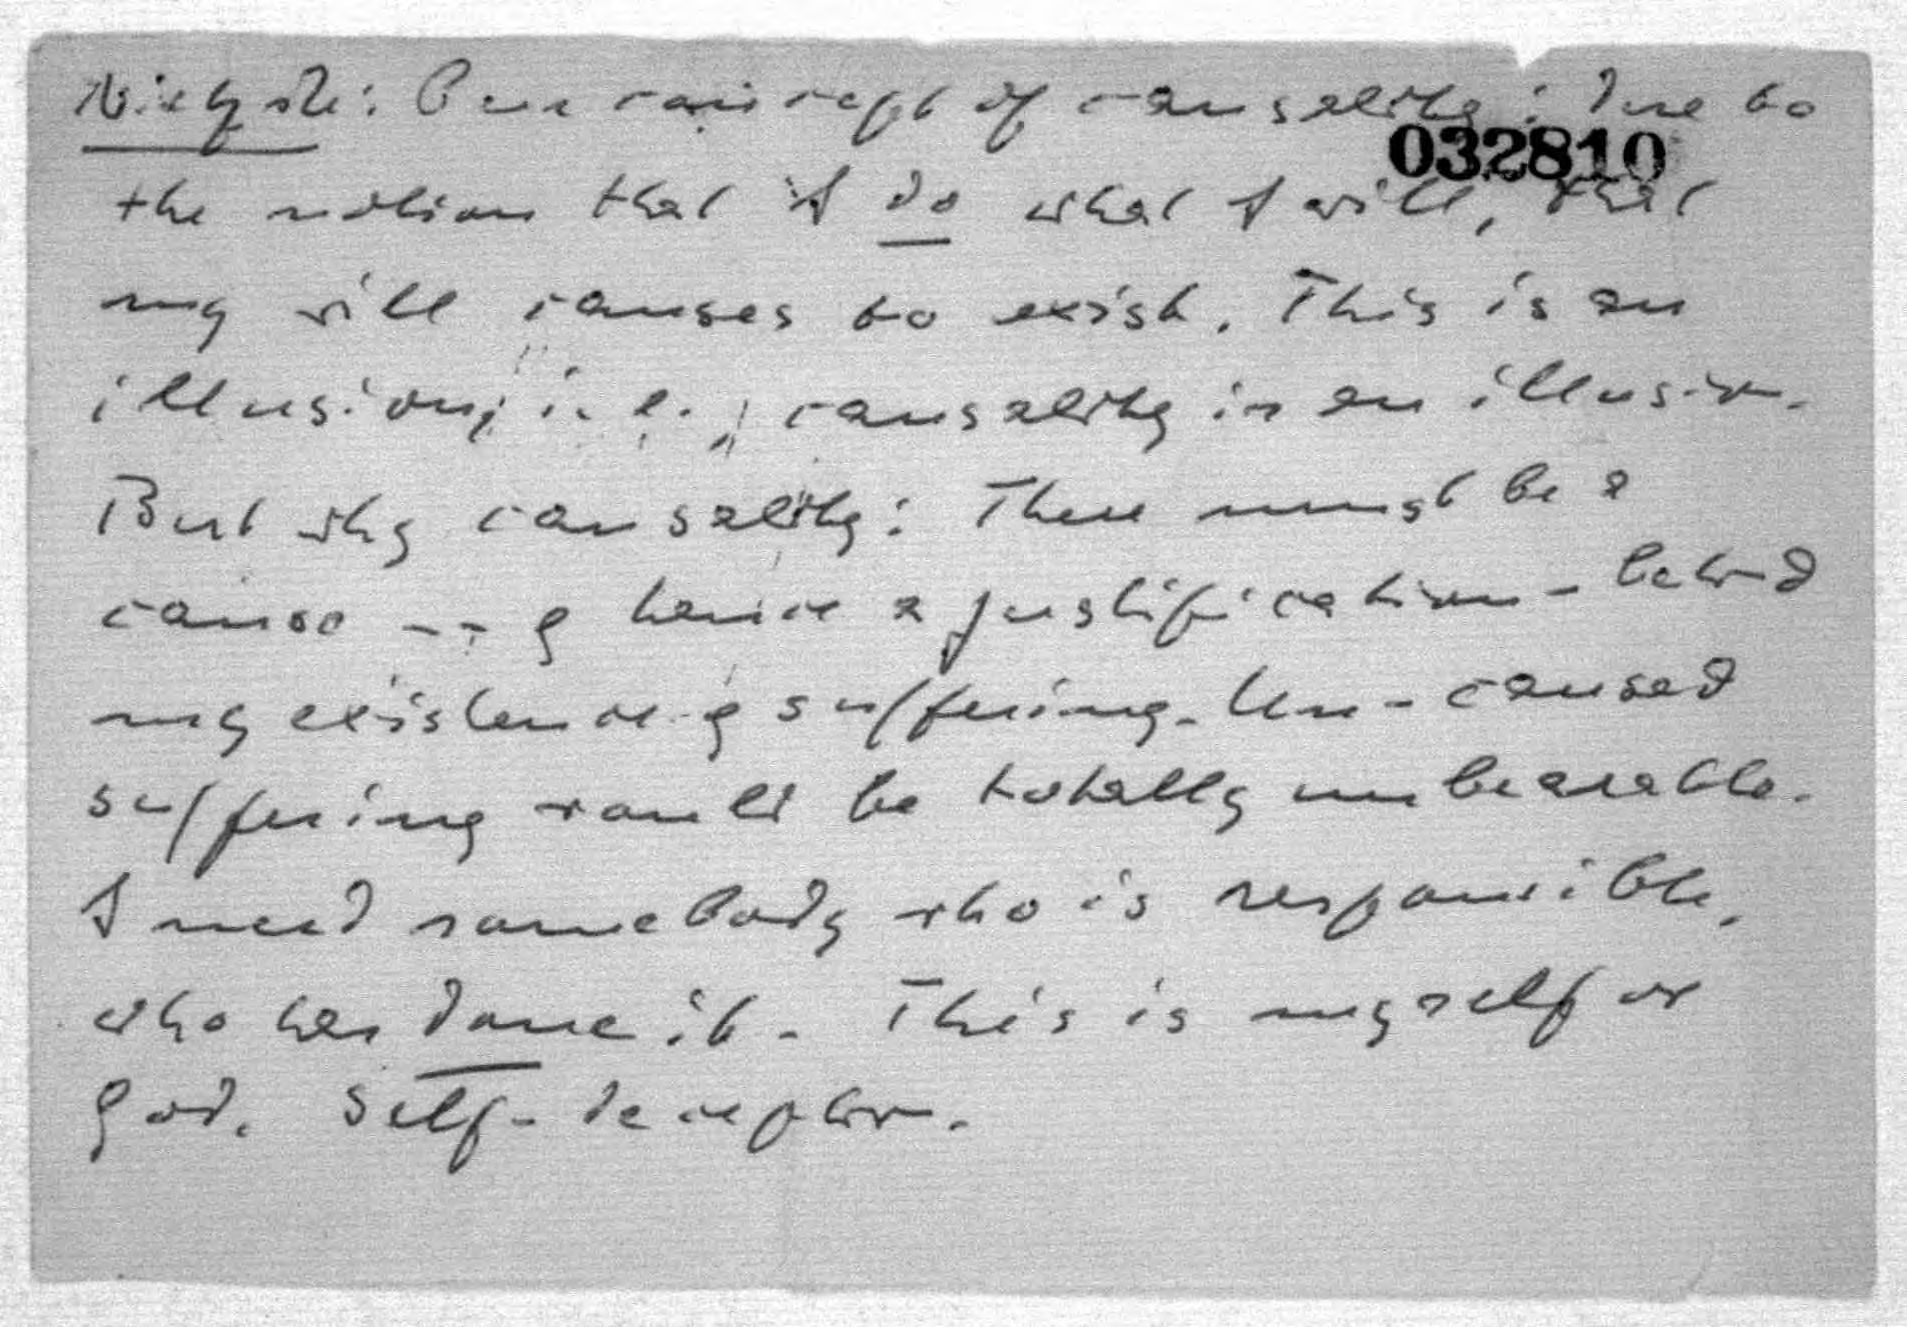 Nietzsche: Our concept of causality: Due to
032810
the notion that I do what I will, that
my will causes to exist. This is an
illusion; i.e., causality is an illusion.
But why causality: There must be a
cause -- & hence a justification - behind
my existence & suffering. Un-caused
suffering would be totally unbearable.
I need somebody who is responsible,
who has done it. This is myself or
god. Self-deception.